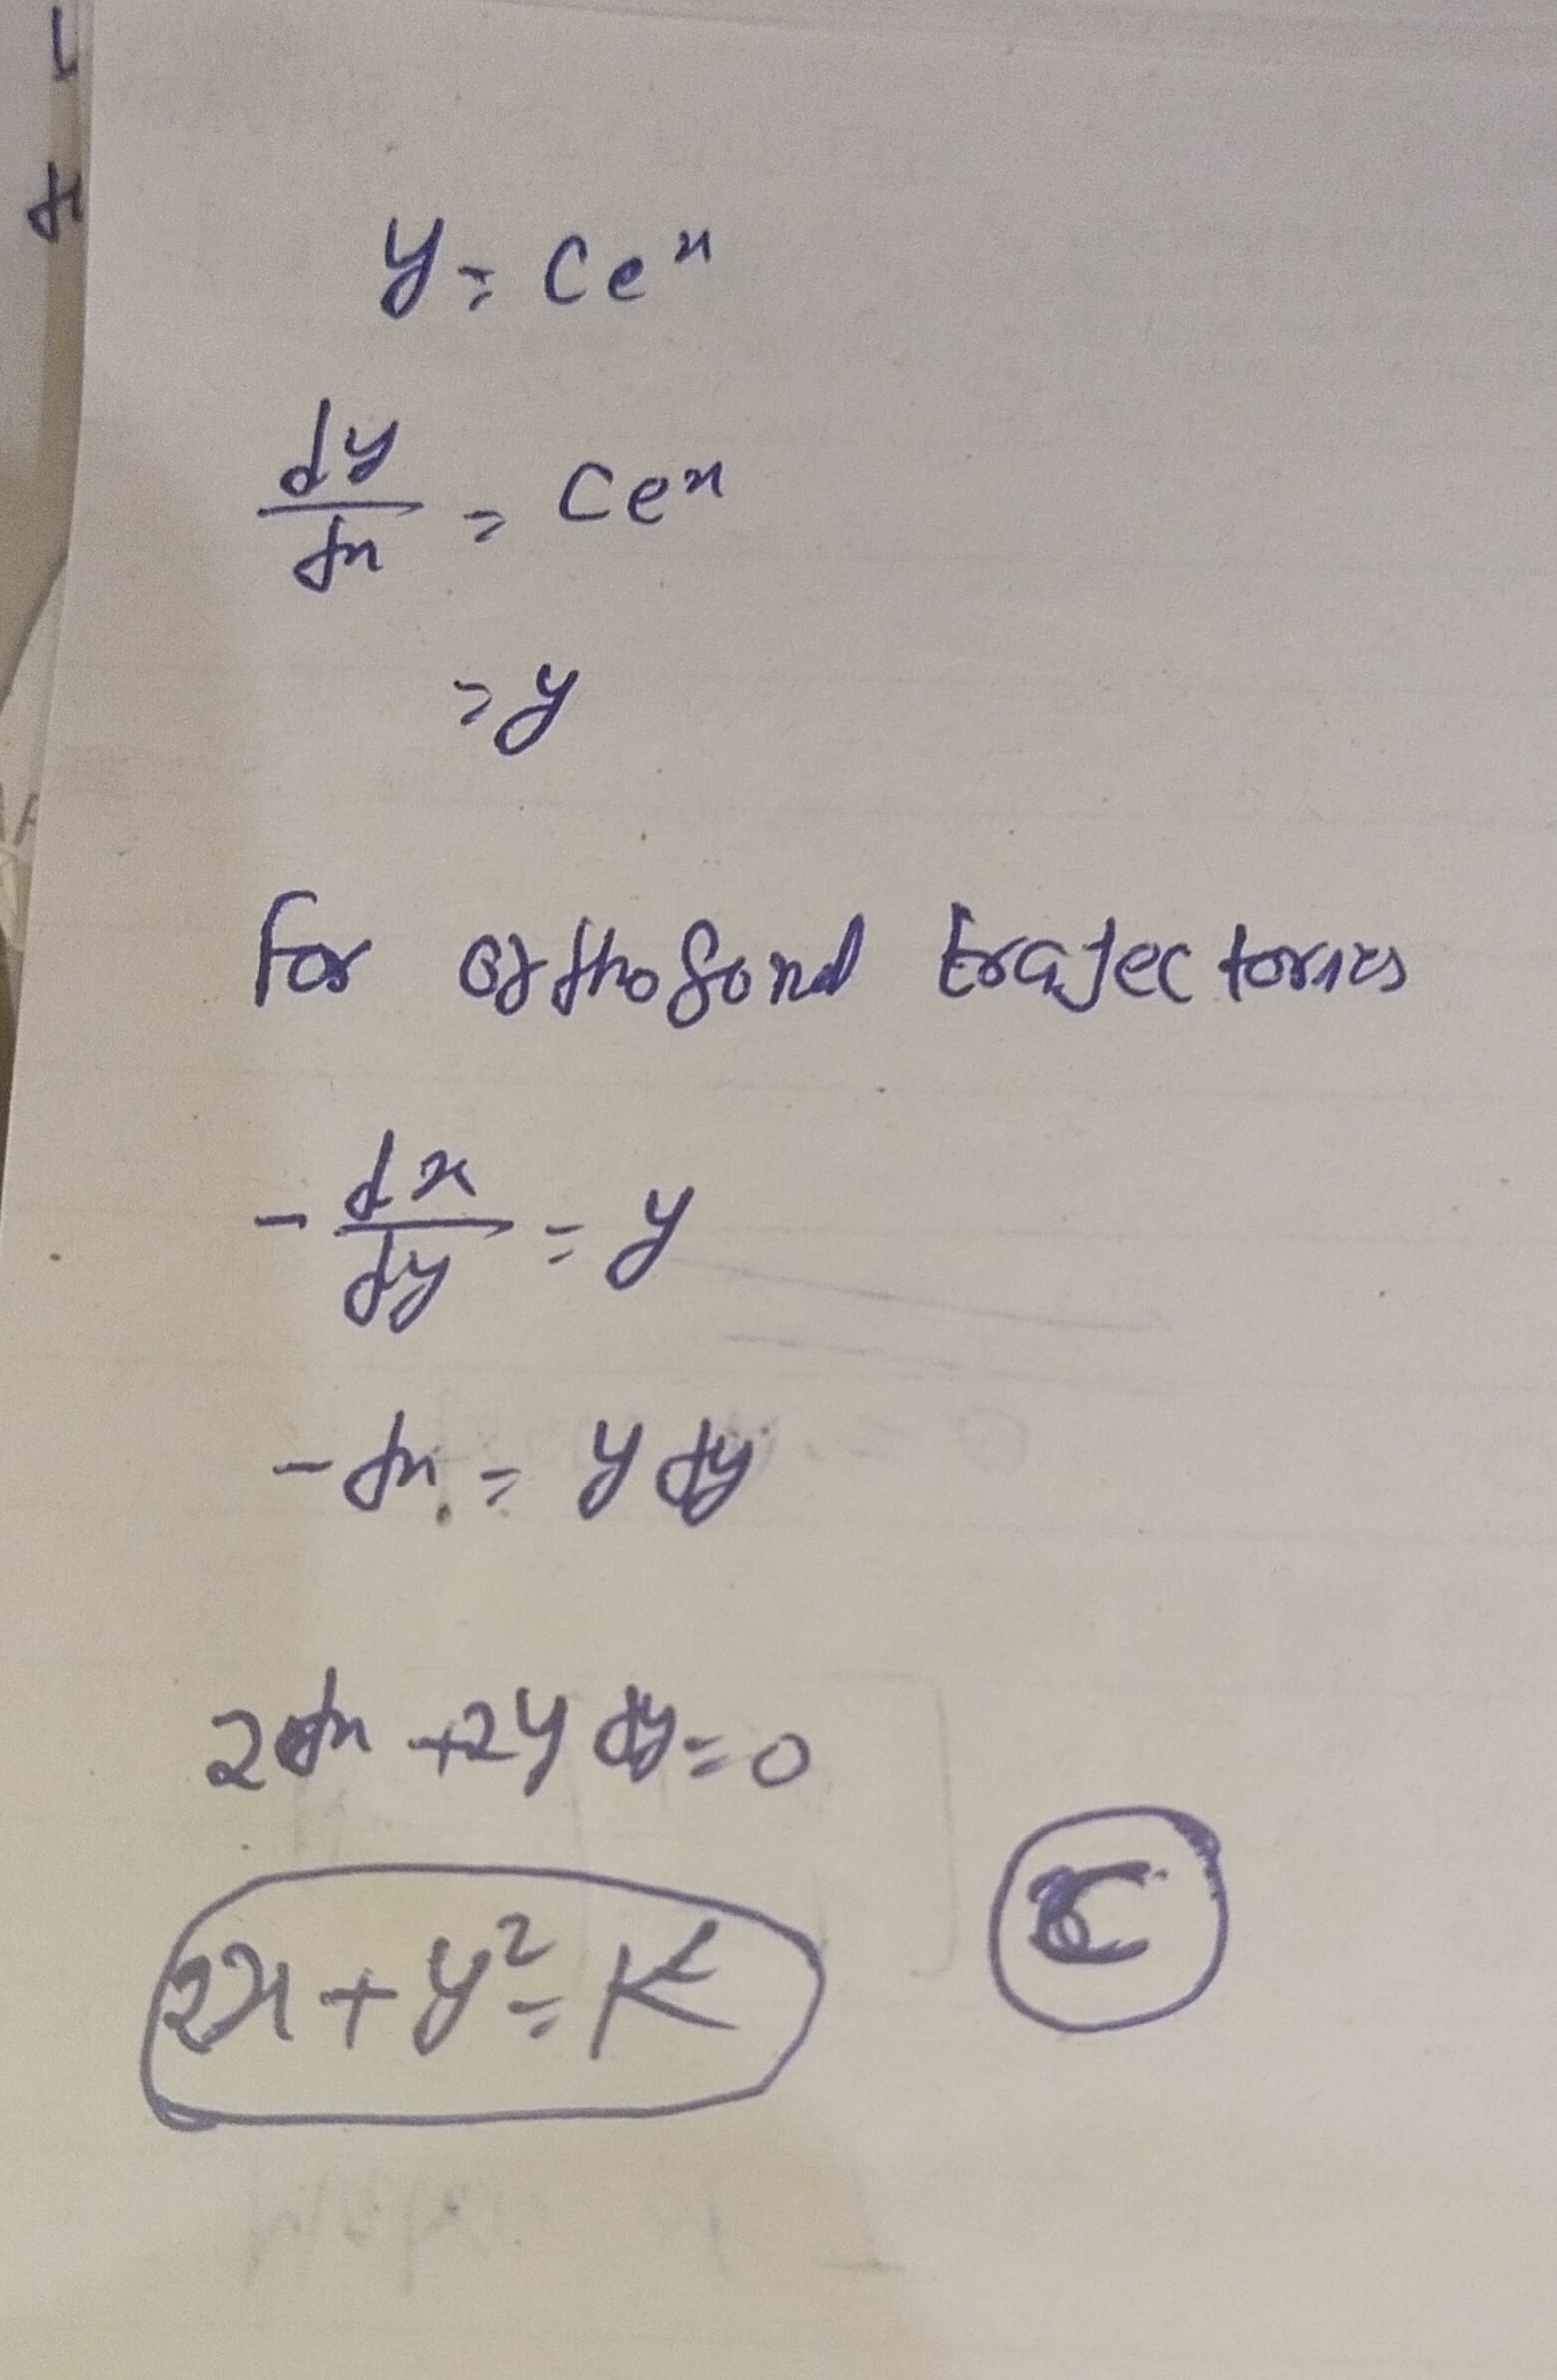 y = Ce^x
dy/dx = Ce^x
= y
for orthogonal trajectories
- dx/dy = y
- dx = y dy
2dx + 2y dy = 0
2x + y² = K
C